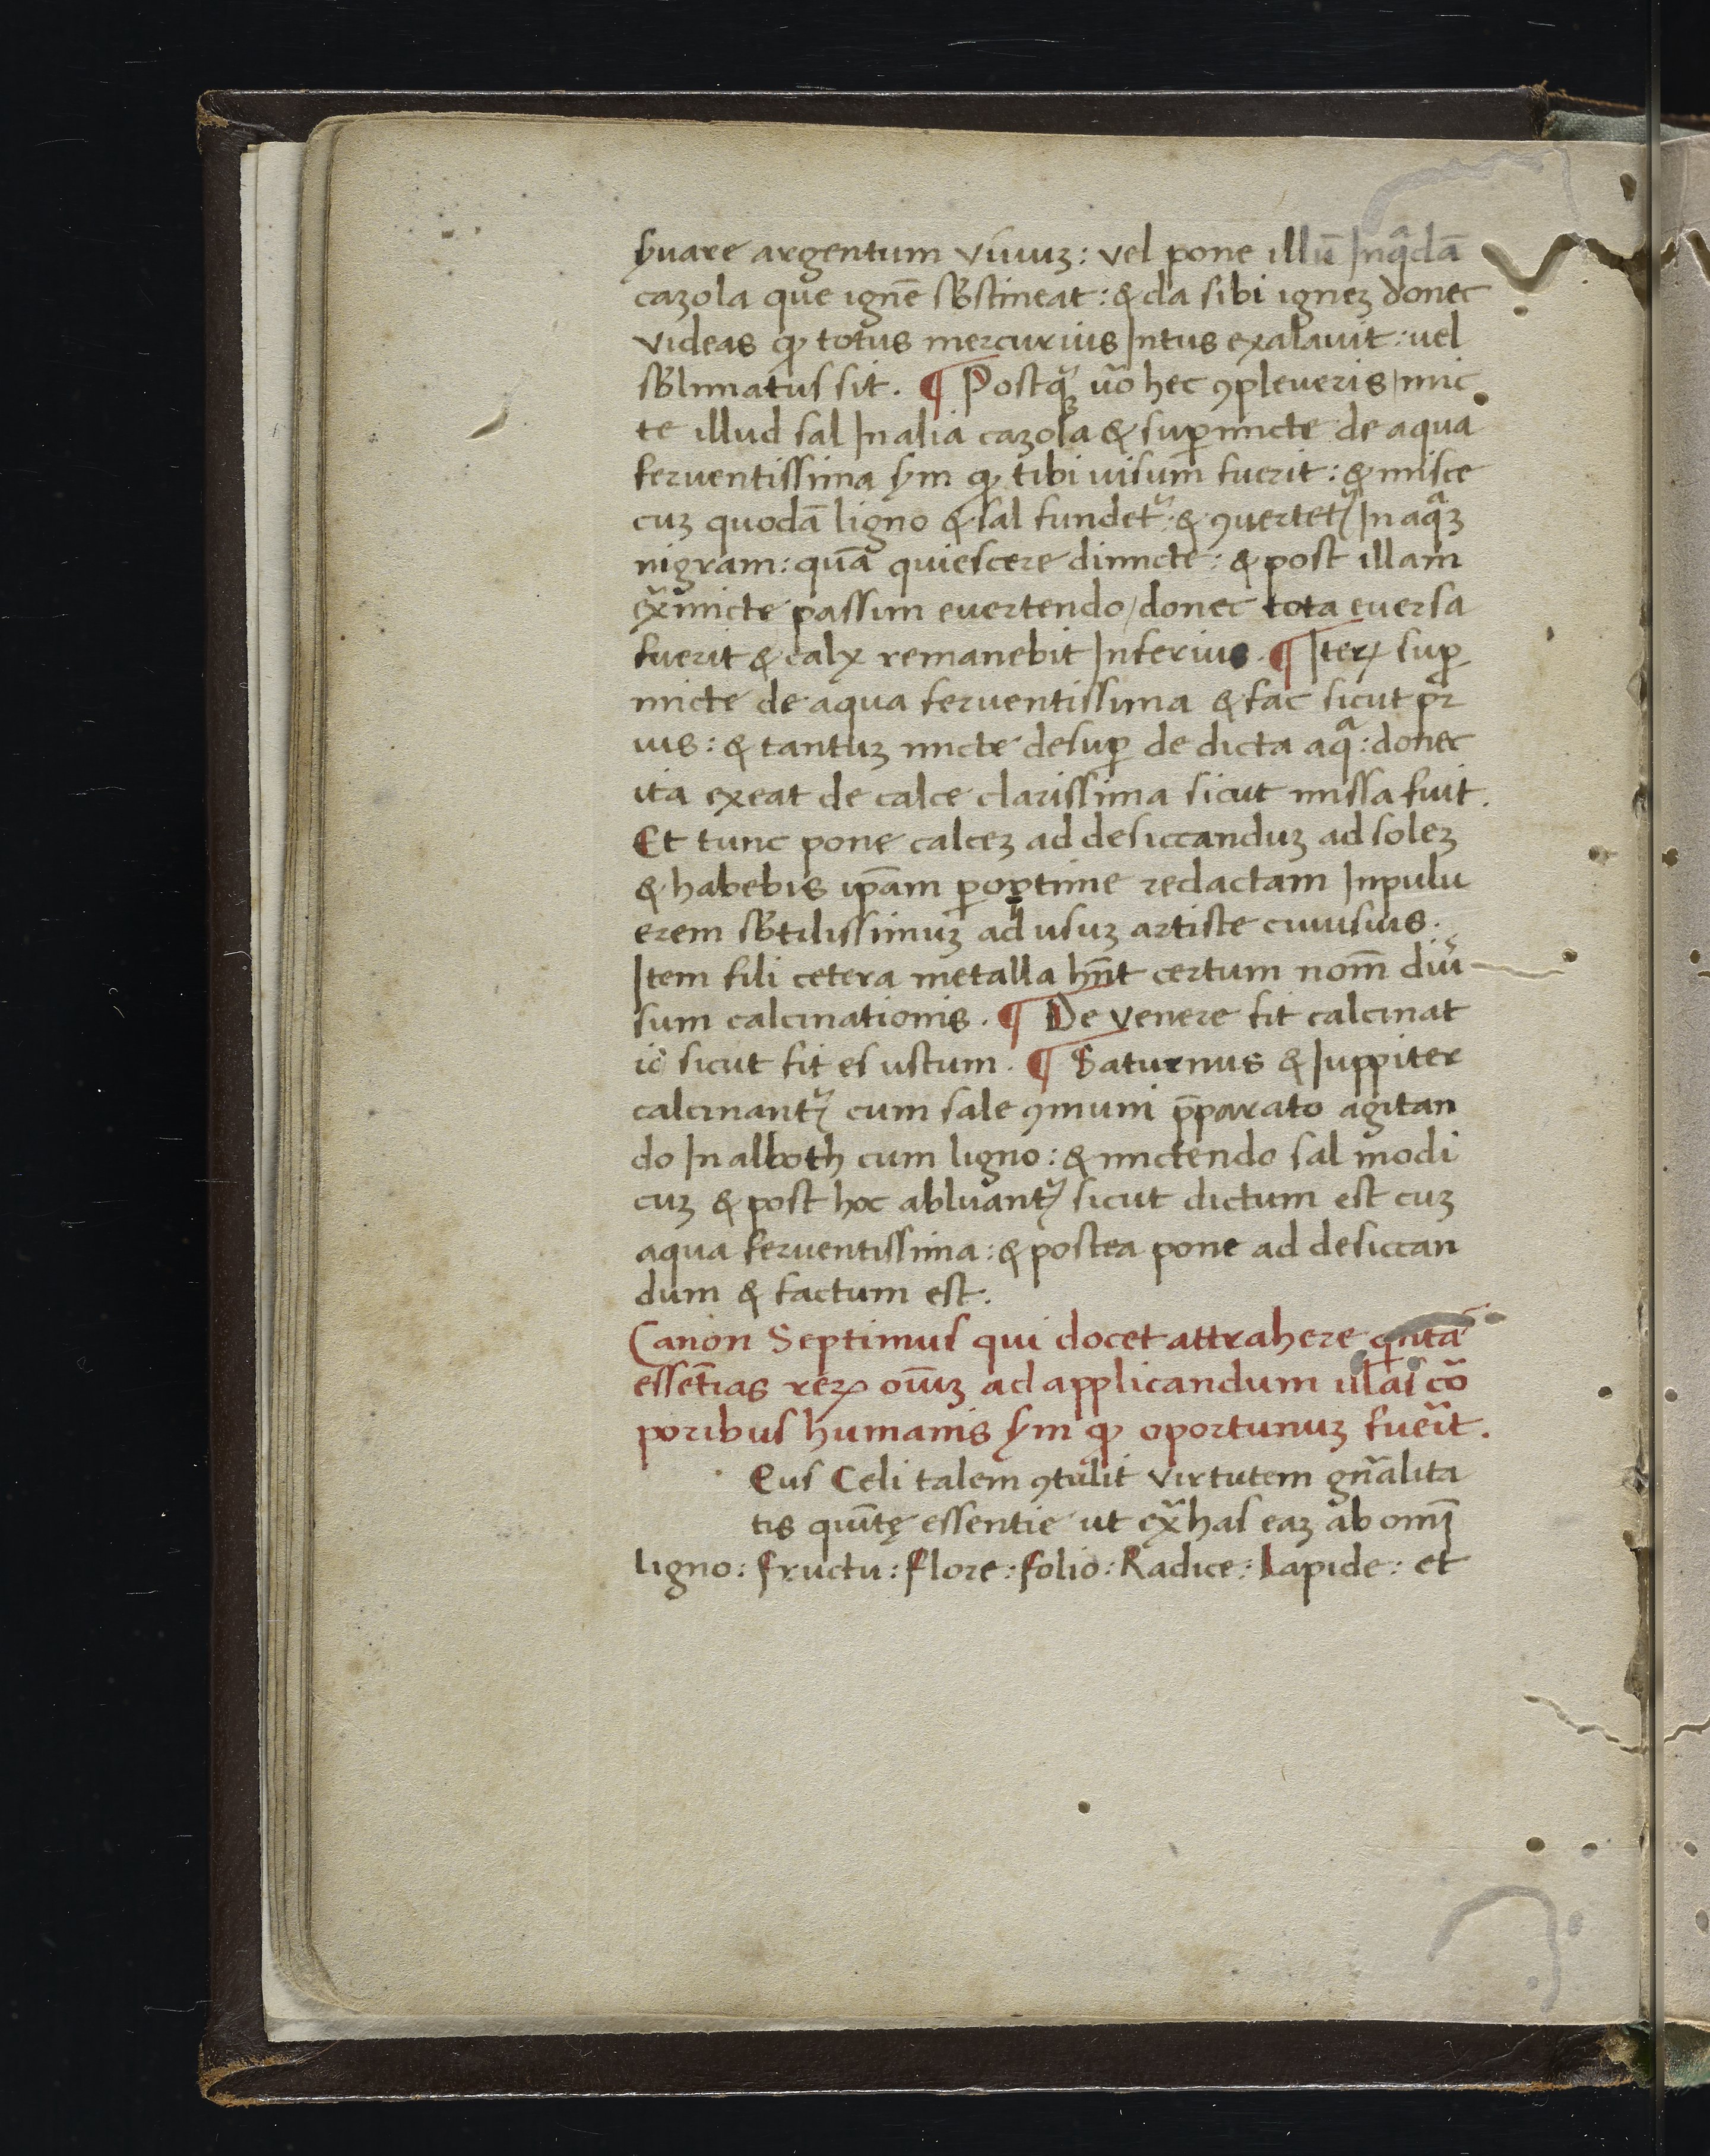 ẜuare argentum viuuꝫ: vel pone illū Inq̄dā
cazola que ignē sƀstineat: & da sibi igneꝫ donec
videas ꝙ totus mercurius Intus exalauit: uel
sƀlimatus sit. ¶ Postqꝫ̄ uo̅ hec ꝯpleueris / mic
te illud sal In alia cazola & suꝑmicte de aqua
feruentissima ẜm ꝙ tibi uisum fuerit: & misce
cuꝫ quodā ligno & sal fundet᷑: & ꝯuertet᷑ In aqᷓꝫ
nigram: quā quiescere dimicte: & post illam
ex̄micte passim euertendo / donec tota euersa
fuerit & calx remanebit Inferius. ¶ Iteꝝ suꝑ
micte de aqua feruentissima & fac sicut pr̄
ius: & tantuꝫ micte desuꝑ de dicta aqᷓ: donec
ita exeat de calce clarissima sicut missa fuit.
Et tunc pone calceꝫ ad desiccanduꝫ ad soleꝫ
& habebis ip̄am ꝑoptime redactam Inpulu
erem sƀtilissimuꝫ ad usuꝫ artiste cuiusuis.
Item fili cetera metalla hn̄t certum nom̄ diu᷑
sum calcinationis. ¶ De venere fit calcinat
io sicut fit es ustum. ¶ Saturnus & Iuppiter
calcinant᷑ cum sale ꝯmuni p̄parato agitan
do In alboth cum ligno: & mictendo sal modi
cuꝫ & post hoc abluant᷑ sicut dictum est cuꝫ
aqua feruentissima: & postea pone ad desiccan
dum & factum est.
Canon Septimus qui docet attrahere qnta᷑
essēt̄ias reꝝ oīuꝫ ad applicandum illas co᷑
poribus humanis ẜm ꝙ oportunuꝫ fuer̄it.
Eus Celi talem ꝯtulit virtutem gn̄alita
tis quīte̜ essentie ut ex̄has eaꝫ ab omī
ligno: fructu: flore: folio: Radice: Lapide: et